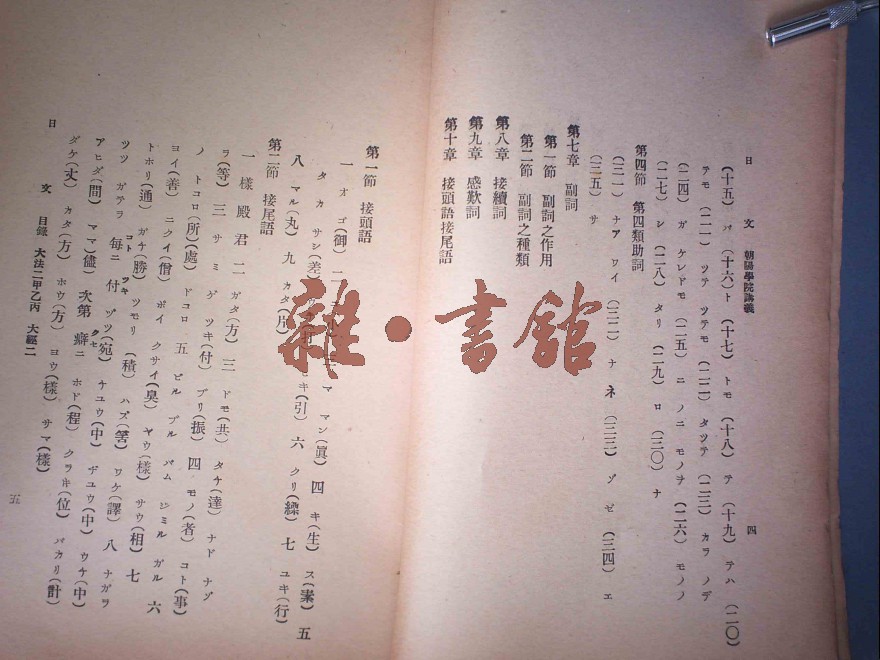 日文 朝陽學院講義 四
(十五) バ (十六) ト (十七) トモ (十八) テ (十九) テハ (二〇)
テモ (二一) ツテ ツテモ (二二) タツテ (二三) カラ ノデ
(二四) ガ ケレドモ (二五) ニ ノニ モノヲ (二六) モノノ
(二七) シ (二八) タリ (二九) ロ (三〇) ナ
第四節 第四類助詞
(三一) ナア ワイ (三二) ナ ネ (三三) ゾ ゼ (三四) エ
(三五) サ
第七章 副詞
第一節 副詞之作用
第二節 副詞之種類
第八章 接續詞
第九章 感歎詞
第十章 接頭語接尾語
第一節 接頭語
一 オ ゴ(御) 二 マ マン(眞) 四 キ(生) ス(素) 五
タ カ サシ(差) キ(引) 六 クリ(繰) 七 ユキ(行)
八 マル(丸) 九 カタ(片)
第二節 接尾語
一 樣 殿 君 二 ガタ(方) 三 ドモ(共) タチ(達) ナド ナゾ
ラ(等) 三 サ ミ ゲ ツキ(付) ブリ(振) 四 モノ(者) コト(事)
ノ トコロ(所)(處) ドコロ 五 ビル ブル バム ジミル ガル 六
ヨイ(善) ニクイ(僧) ポイ クサイ(臭) ヤウ(樣) サウ(相) 七
トホリ(通) ガチ(勝) ツモリ(積) ハズ(筈) ワケ(譯) 八 ナガラ
ツツ ガテラ 毎ニ 付 ヅツ(宛) チユウ(中) ヂユウ(中) ウチ(中)
アヒダ(間) ママ(儘) 次第 癖ニ ホド(程) クラヰ(位) バカリ(計)
ダケ(丈) カタ(方) ホウ(方) ヨウ(樣) サマ(樣)
日文 目錄 大法二甲乙丙 大經二 五
雜·書館